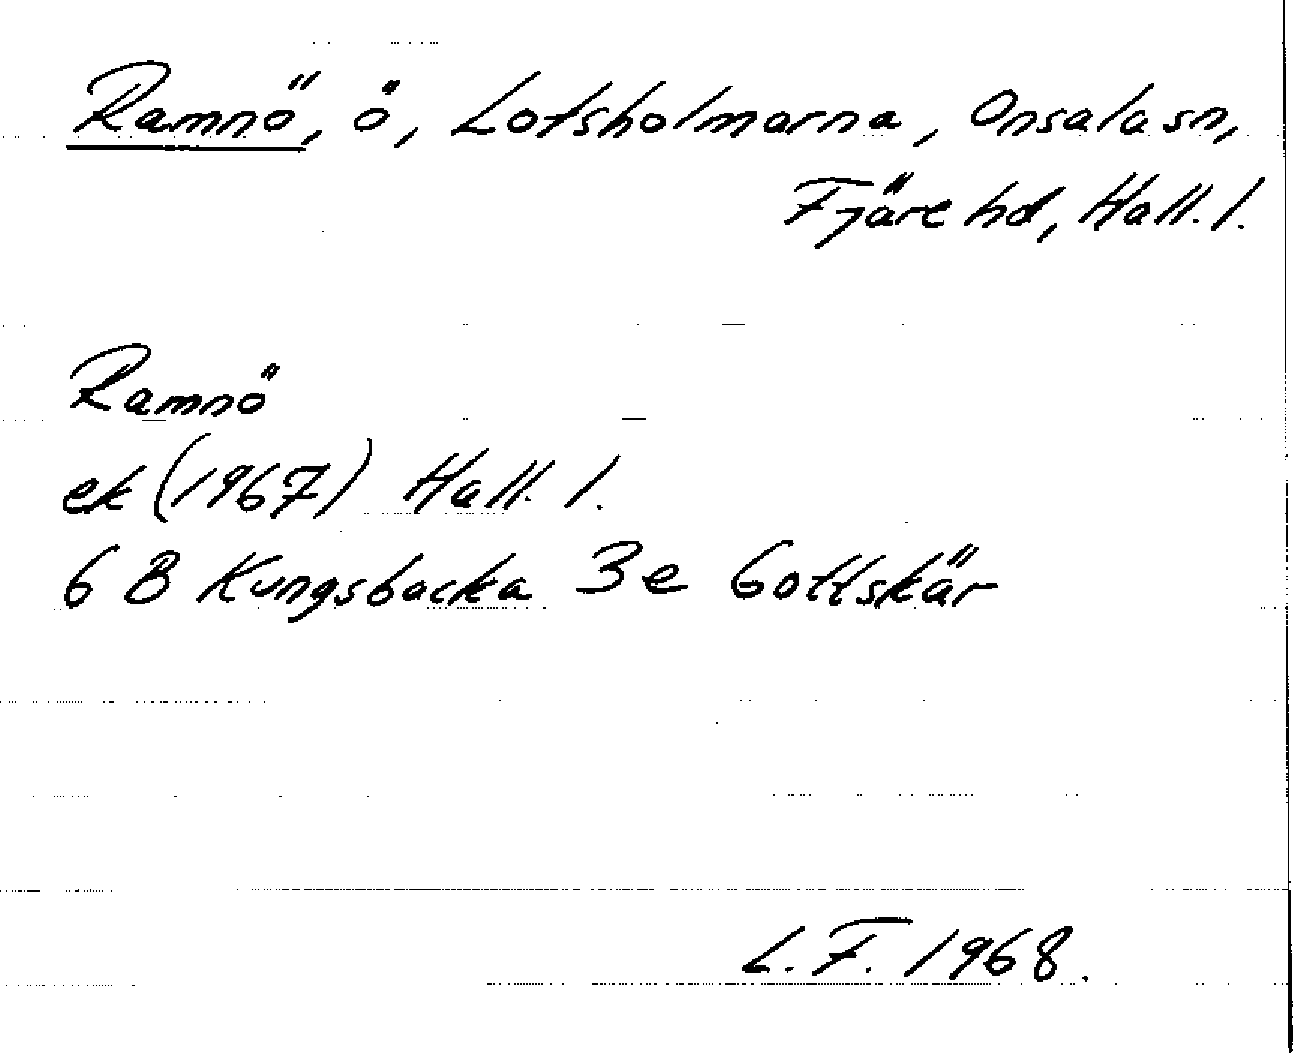 Ramnö, ö, Lotsholmarna, Onsala sn,
Fjäre hd, Hall. l.
Ramnö
ek (1967) Hall. l.
6 B Kungsbacka 3 e Gottskär
L. F. 1968.